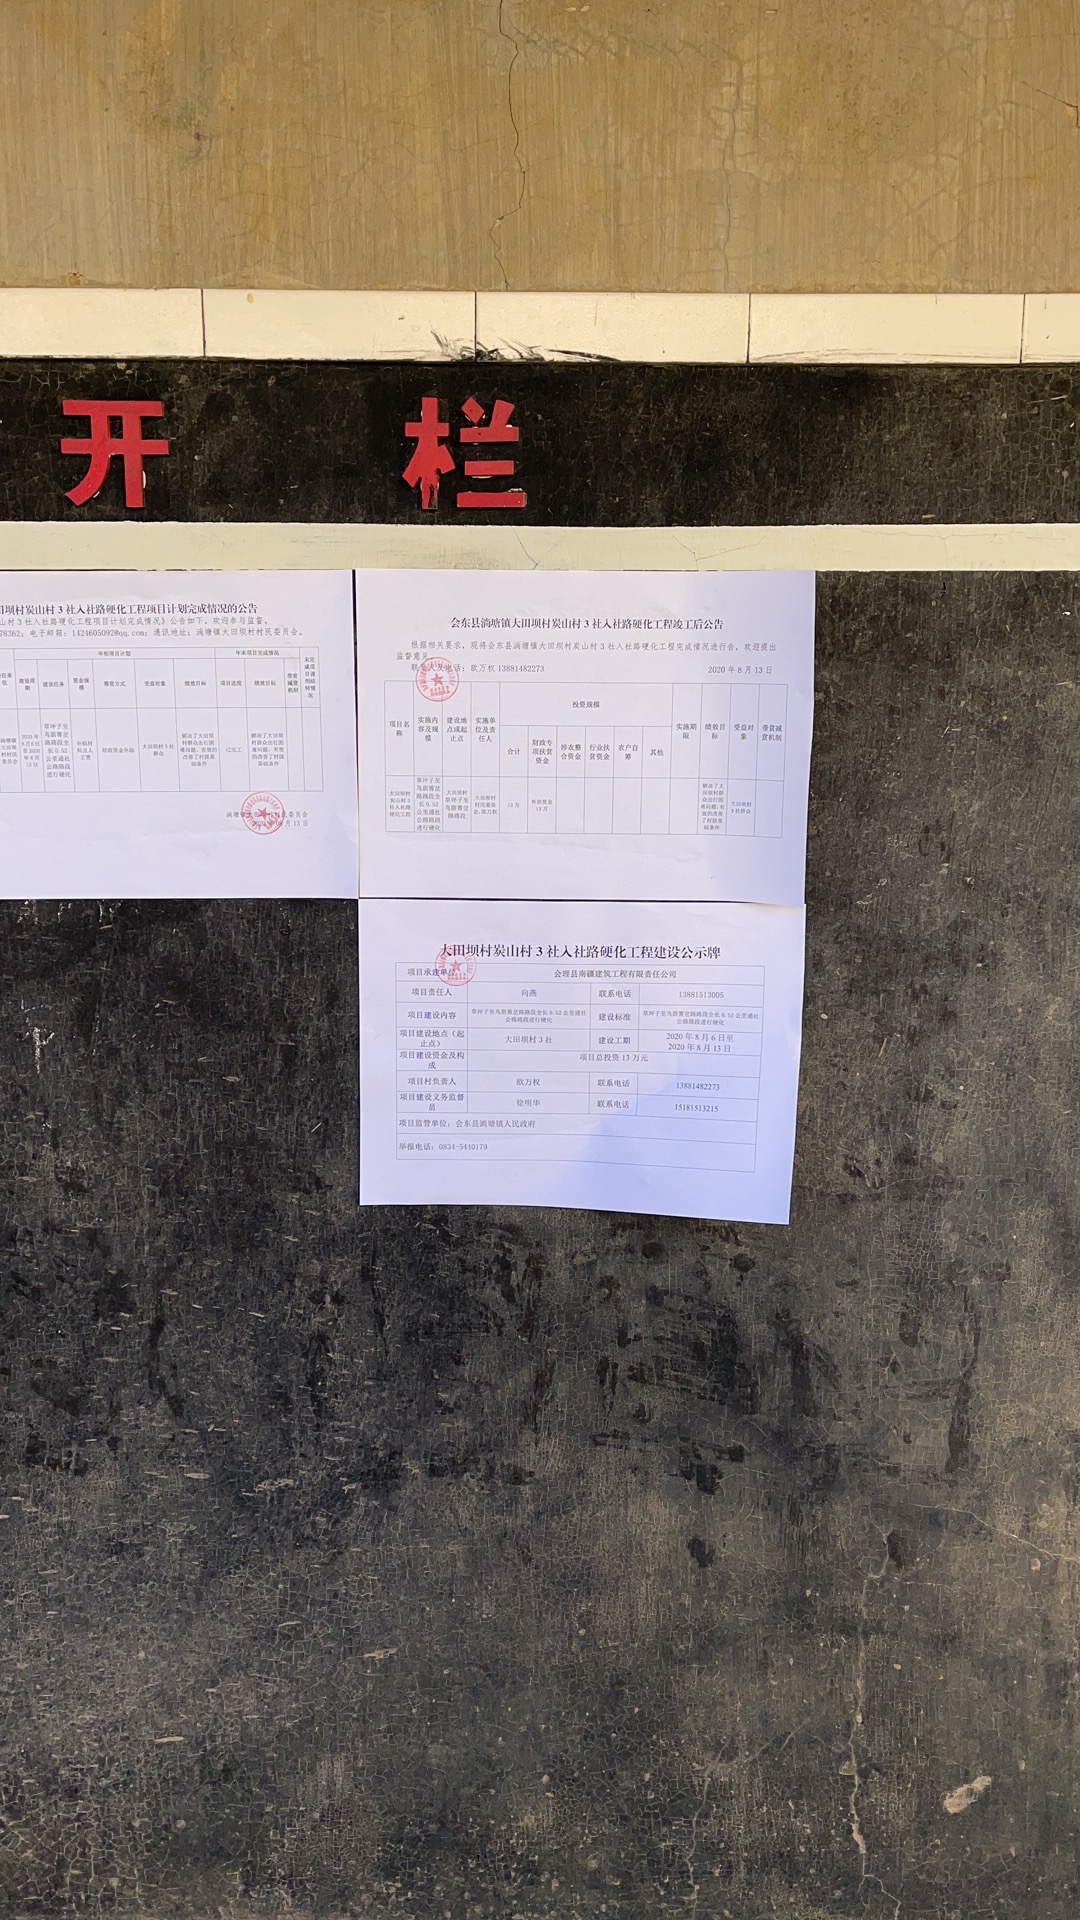 开 栏
田坝村炭山村3社入社路硬化工程项目计划完成情况的公告
山村3社入社路硬化工程项目计划完成情况》公告如下。欢迎参与监督。
78362；电子邮箱：1424605092@qq.com；通讯地址：淌塘镇大田坝村村民委员会。
年初项目计划 年末项目完成情况
建设周期 建设任务 资金规模 筹资方式 受益对象 绩效目标 项目进度 绩效目标 带贫减贫机制
2020年8月6日至2020年8月13日 草坪子至鸟落箐岔路路段全长0.52公里通社公路路段进行硬化 补贴材料及人工费 财政资金补助 大田坝村3社群众 已完工
月13日
会东县淌塘镇大田坝村炭山村3社入社路硬化工程竣工后公告
根据相关要求，现将会东县淌塘镇大田坝村炭山村3社入社路硬化工程完成情况进行公告，欢迎提出
监督意见。
联系人及电话：欧万权 13881482273 2020年8月13日
项目名称 实施内容及规模 建设地点或起止点 实施单位及责任人 投资规模 实施期限 绩效目标 受益对象 带贫减贫机制
合计 财政专项扶贫资金 涉农整合资金 行业扶贫资金 农户自筹 其他
大田坝村炭山村3社入社路硬化工程 大田坝村村民委员会；欧万权 13万 补助资金13万
大田坝村炭山村3社入社路硬化工程建设公示牌
项目承建单位 会理县南疆建筑工程有限责任公司
项目责任人 向燕 联系电话 13881513005
项目建设内容 草坪子至鸟落箐岔路路段全长0.52公里通社公路路段进行硬化 建设标准 草坪子至鸟落箐岔路路段全长0.52公里通社公路路段进行硬化
项目建设地点（起止点） 大田坝村3社 建设工期 2020年8月6日至2020年8月13日
项目建设资金及构成 项目总投资13万元
项目村负责人 欧万权 联系电话 13881482273
项目建设义务监督员 徐明华 联系电话 15181513215
项目监管单位：会东县淌塘镇人民政府
举报电话：0834-5440179